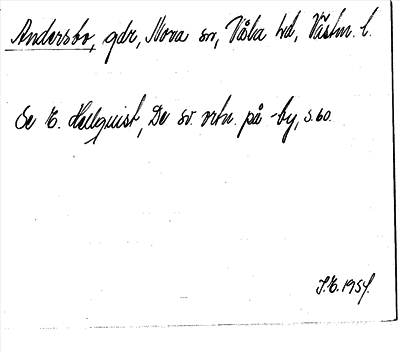 Andersbo, gdr, Nora sn, Våla hd, Västm. l.
Se E. Hellquist, De sv. ortn. på -by, s. 60.
S.E. 1954.